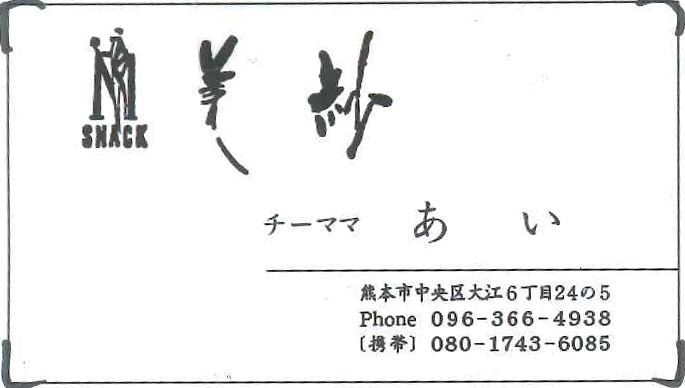 M
SNACK
美紗
チーママ あい
熊本市中央区大江6丁目24の5
Phone 096-366-4938
〔携帯〕 080-1743-6085